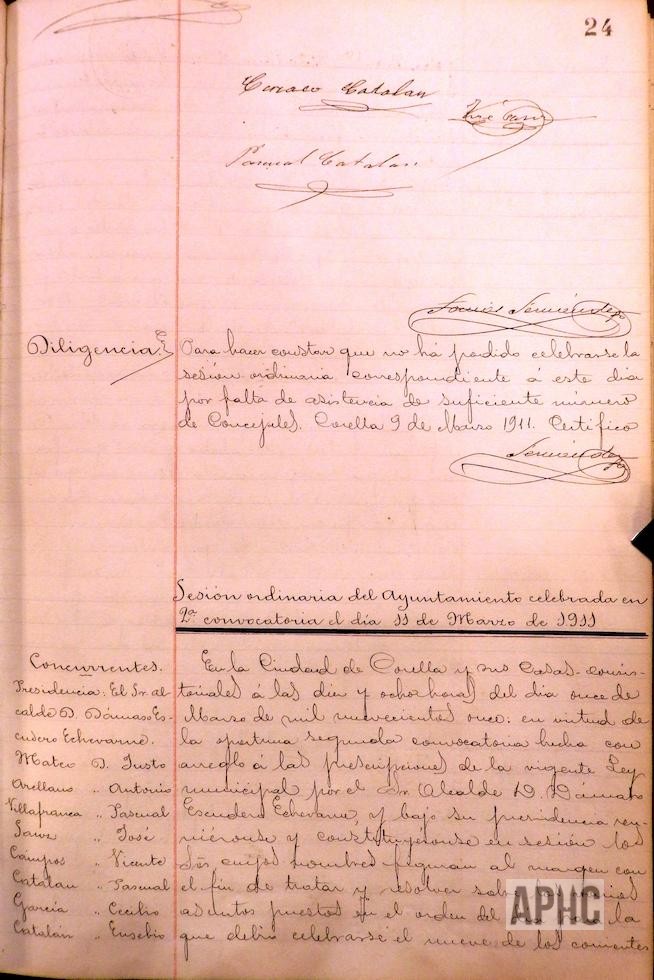 24
Ciriaco Catalan
José
Pascual Catalan
Diligencia.
Para hacer constar que no há podido celebrarse la
sesión ordinaria correspondiente á este dia
por falta de asistencia de suficiente número
de Concejales. Corella 9 de Marzo 1911. Certifico
Sesión ordinaria del Ayuntamiento celebrada en
2ª convocatoria el día 11 de Marzo de 1911
Concurrentes.
Presidencia: El Sr. al-
calde D. Dámaso Es-
cudero Echevarne.
Mateo D. Justo
Arellano " Antonio
Villafranca " Pascual
Sanz " José
Campos " Vicente
Catalan " Pascual
García " Cecilio
Catalán " Eusebio
En la Ciudad de Corella y sus Casas-consis-
toriales á las diez y ocho horas del dia once de
Marzo de mil nuevecientos once: en virtud de
la oportuna segunda convocatoria hecha con
arreglo á las prescripciones de la vigente Ley
municipal por el Sr. Alcalde D. Dámaso
Escudero Echevarne, y bajo su presidencia reu-
niéronse y constituyeronse en sesión los
Sres cuyos nombres figuran al margen con
el fin de tratar y resolver sobre
asuntos puestos en el orden del la
que debió celebrarse el nueve de los corrientes
APHC